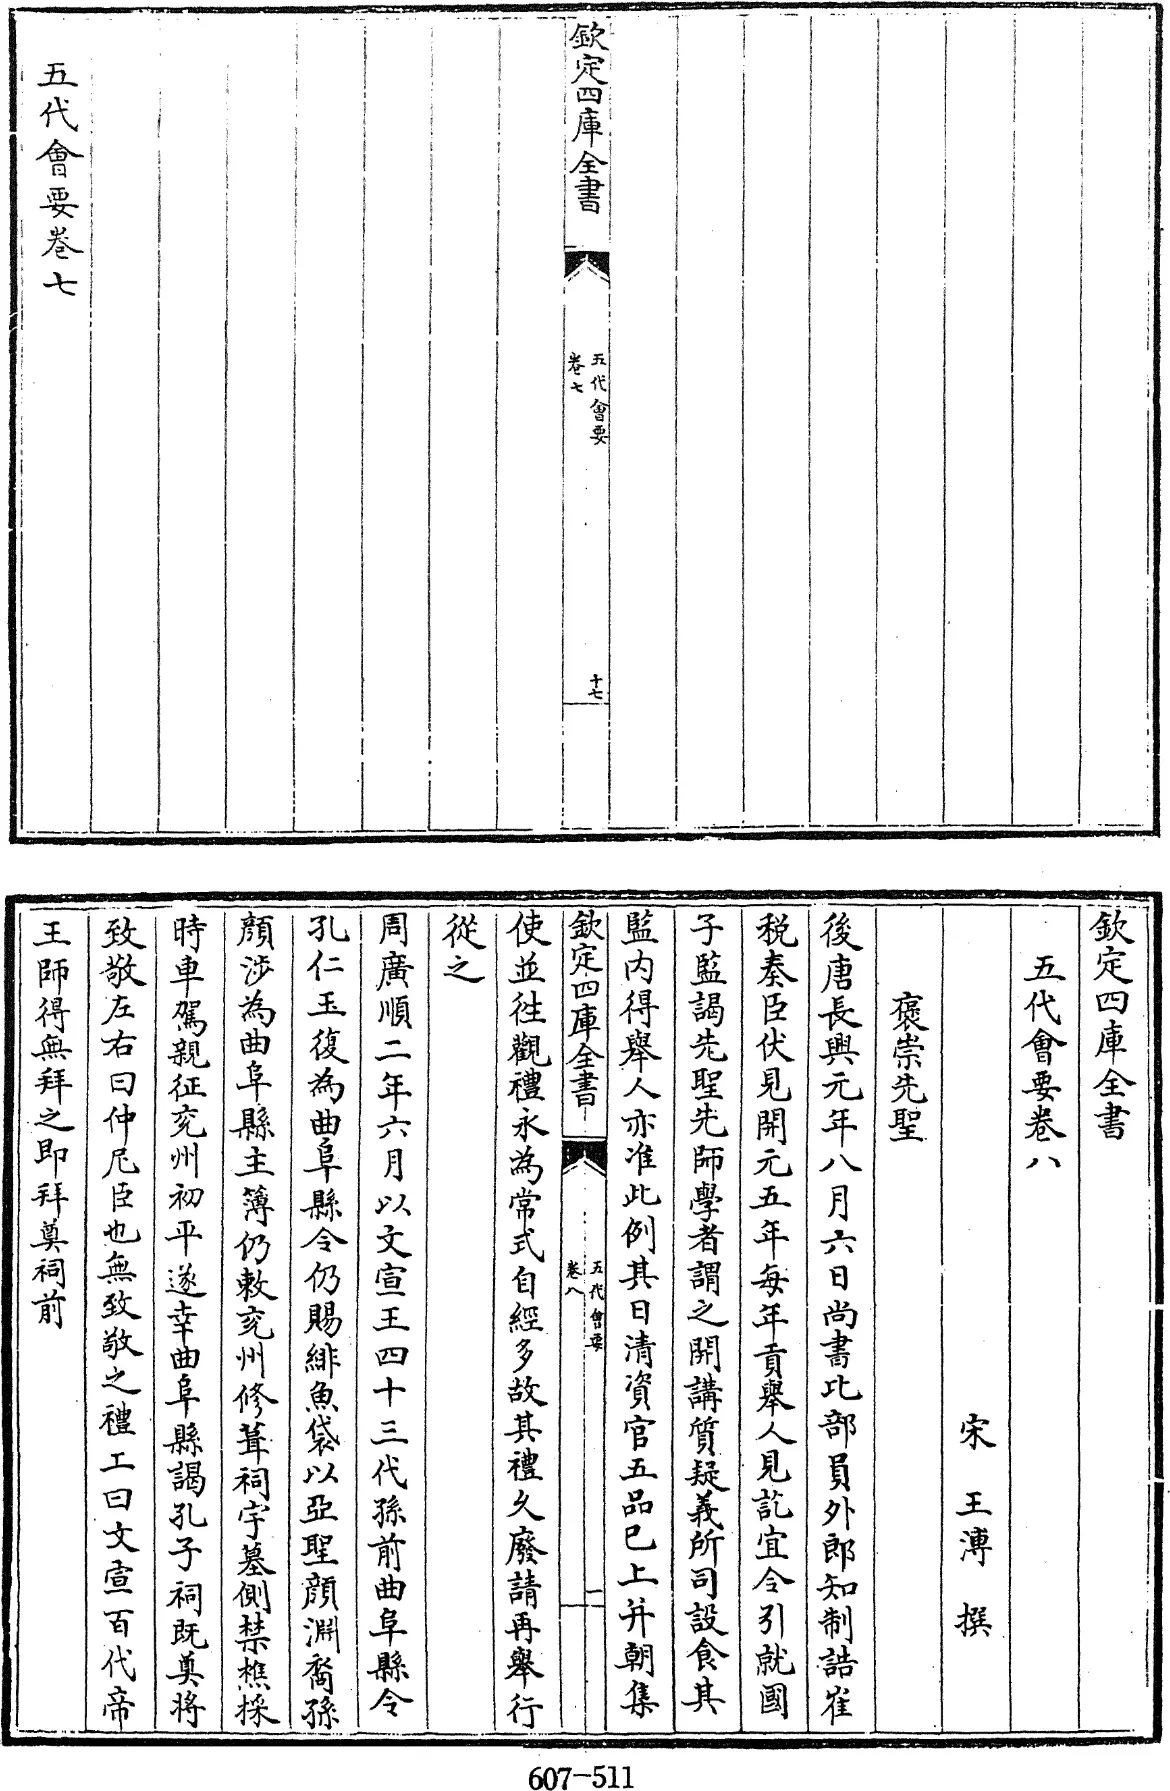 欽定四庫全書
五代會要
卷七
十七
五代會要卷七
欽定四庫全書
五代會要卷八
宋 王溥 撰
褒崇先聖
後唐長興元年八月六日尚書比部員外郎知制誥崔
稅奏臣伏見開元五年每年貢舉人見訖宜令引就國
子監謁先聖先師學者謂之開講質疑義所司設食其
監內得舉人亦准此例其日清資官五品已上并朝集
欽定四庫全書
五代會要
卷八
一
使並往觀禮永為常式自經多故其禮久廢請再舉行
從之
周廣順二年六月以文宣王四十三代孫前曲阜縣令
孔仁玉復為曲阜縣令仍賜緋魚袋以亞聖顏淵裔孫
顏涉為曲阜縣主簿仍敕兗州修葺祠宇墓側禁樵採
時車駕親征兗州初平遂幸曲阜縣謁孔子祠既奠將
致敬左右曰仲尼臣也無致敬之禮上曰文宣百代帝
王師得無拜之即拜奠祠前
607-511